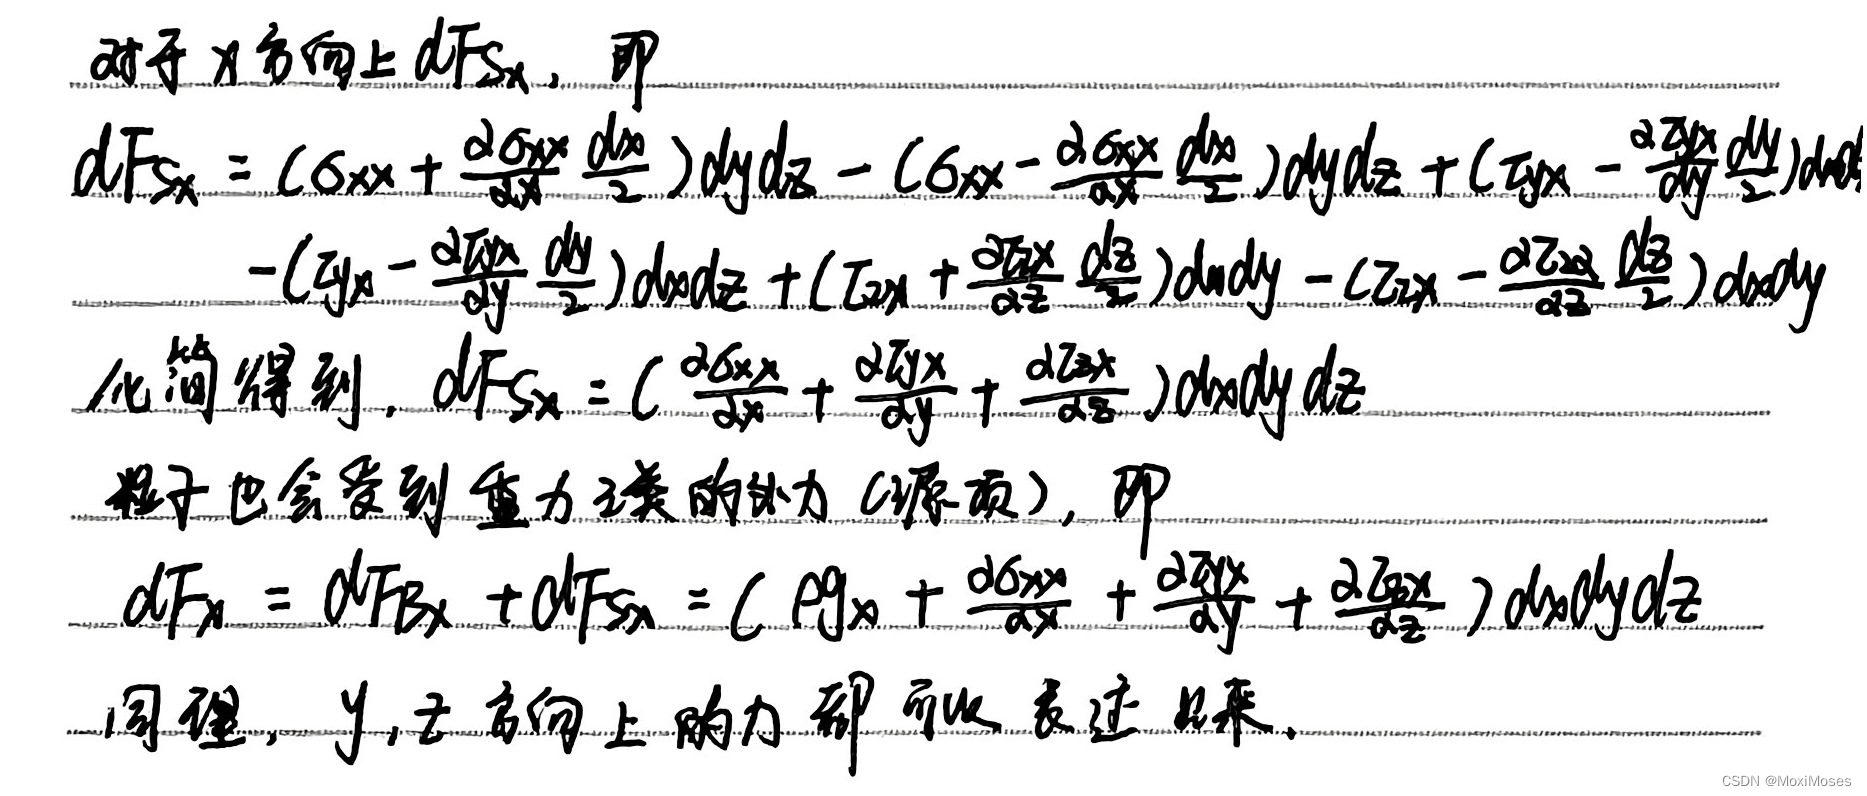 对于x方向上dFsₓ，即
dFsₓ = (σxx + ∂σxx/∂x dx/2)dydz - (σxx - ∂σxx/∂x dx/2)dydz + (τyx - ∂τyx/dy dy/2)dxdz
-(τyx - ∂τyx/∂y dy/2)dxdz + (τzx + ∂τzx/∂z dz/2)dxdy - (τzx - ∂τzx/∂z dz/2)dxdy
化简得到，dFsₓ = (∂σxx/∂x + ∂τyx/∂y + ∂τzx/∂z)dxdydz
粒子也会受到重力之类的外力（源项），即
dFₓ = dFBₓ + dFsₓ = (ρgₓ + ∂σxx/∂x + ∂τyx/∂y + ∂τzx/∂z)dxdydz
同理，y,z方向上的力都可以表述出来.
CSDN @MoxiMoses